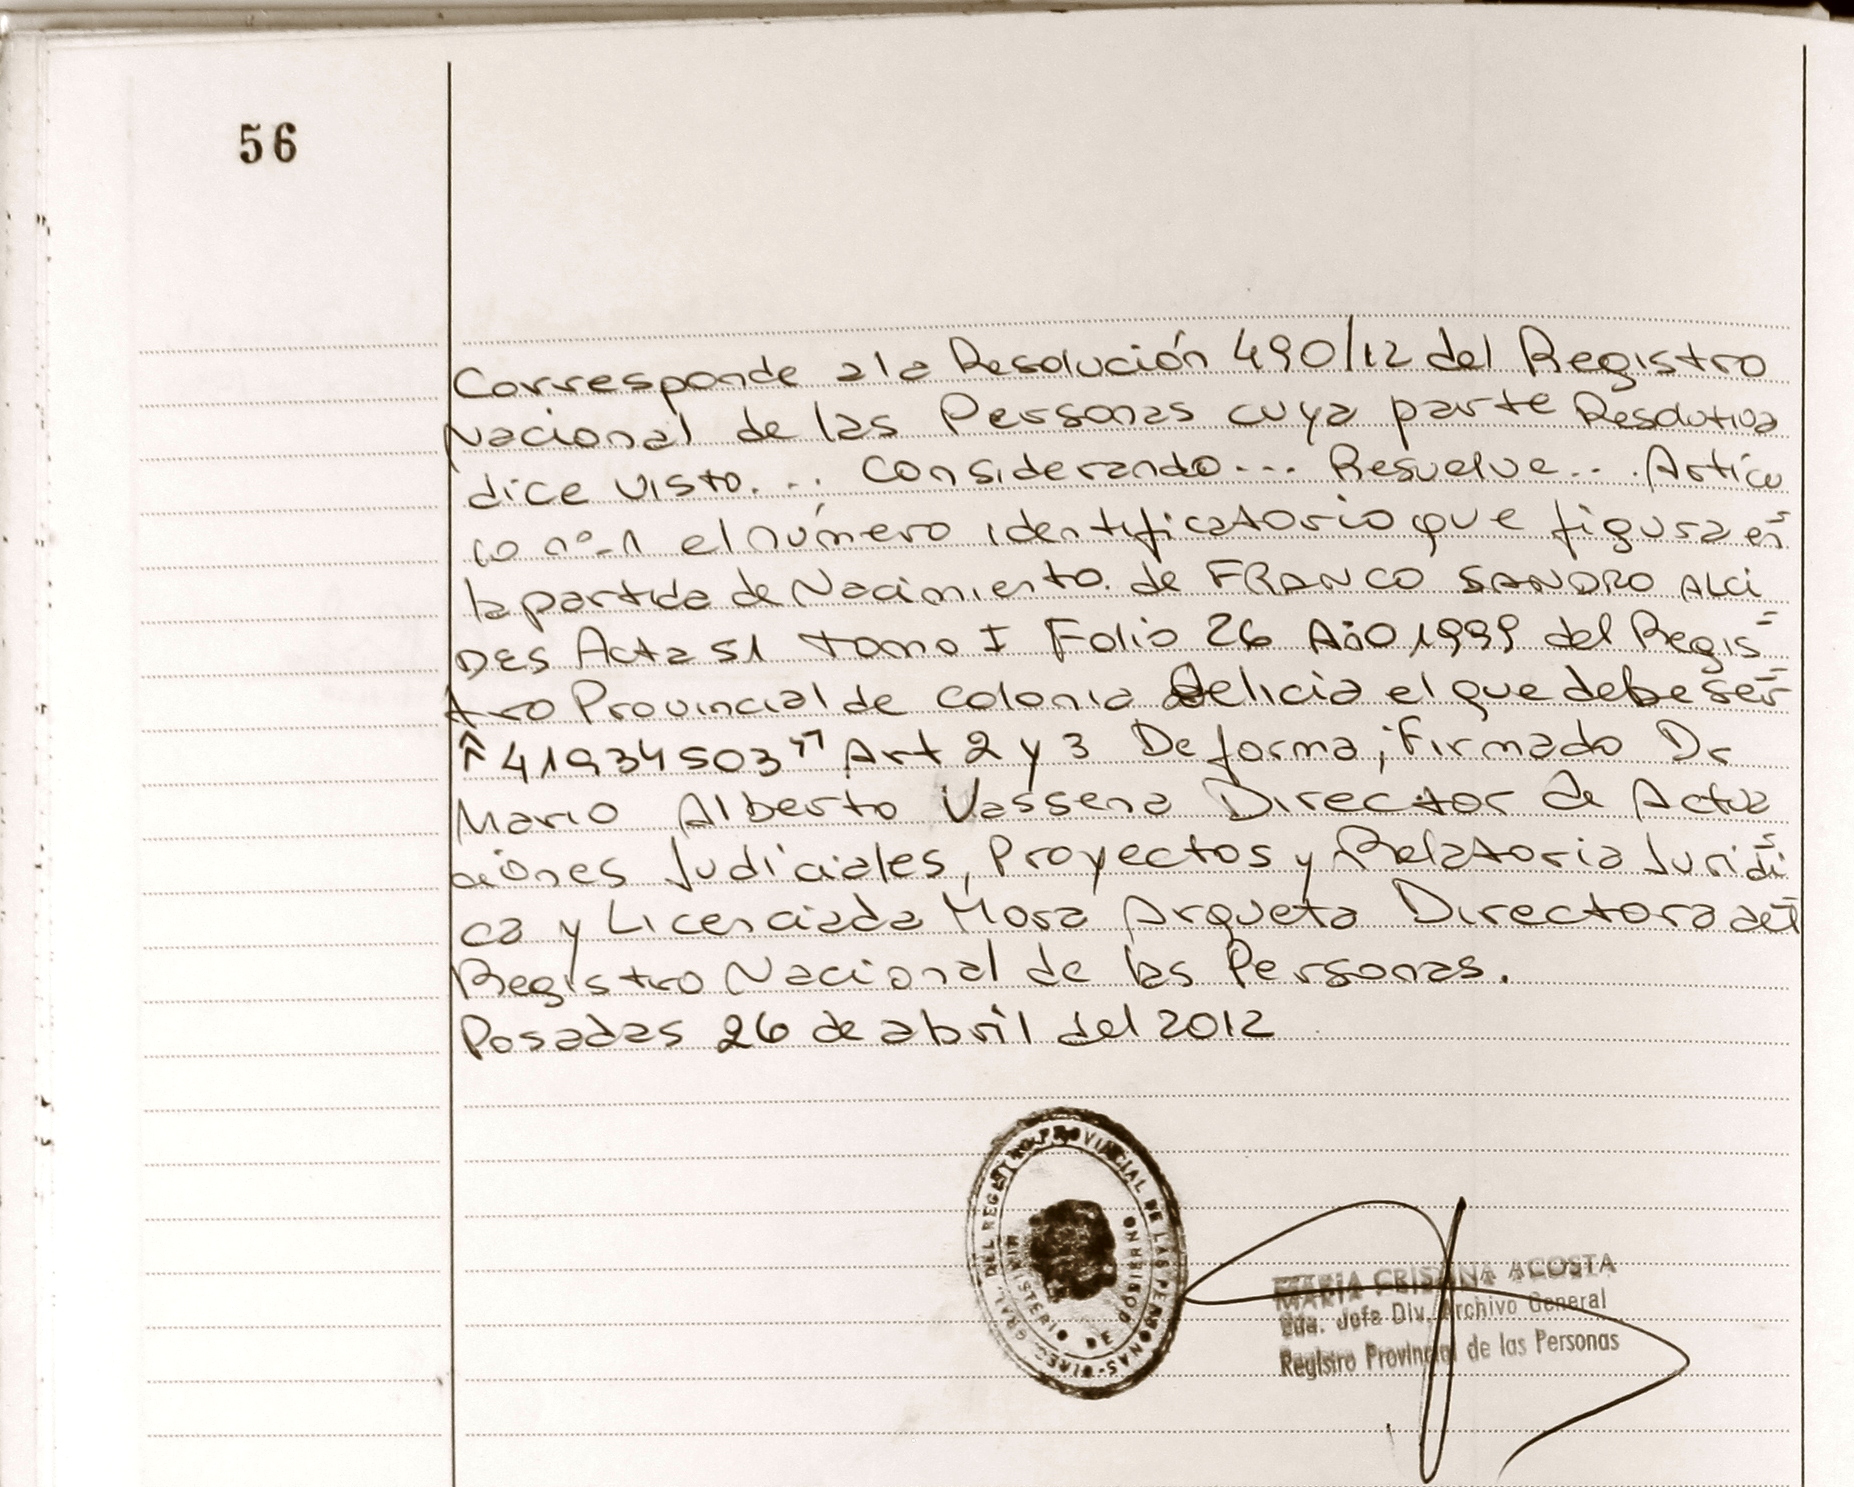 56
Corresponde a la Resolución 490/12 del Registro
Nacional de las Personas cuya parte Resolutiva
dice visto... Considerando... Resuelve... Artícu
lo nº-1 el número identificatorio que figura en
la partida de Nacimiento de FRANCO SANDRO ALCI
DES Acta 51 tomo I Folio 26 Año 1999 del Regis=
tro Provincial de Colonia Delicia el que debe ser
"41934503" Art 2 y 3 De forma; Firmado Dr
Mario Alberto Vassena Director de Actua
ciones Judiciales, Proyectos y Relatoria Juridi
ca y Licenciada Mora Arqueta Directora del
Registro Nacional de las Personas.
Posadas 26 de abril del 2012
DIREC. GRAL. DEL REGISTRO PROVINCIAL DE LAS PERSONAS
MINISTERIO DE GOBIERNO
MARIA CRISTINA ACOSTA
Jefa Div. Archivo General
Registro Provincial de las Personas